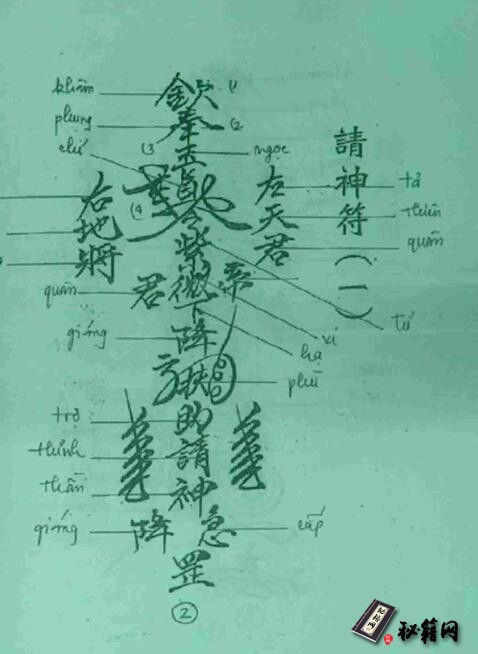 請神符(一)
khâm 欽 (1
phụng 奉 (2
chú (3 玉 ngọc
(4)
右地將
左天君
tả
thiên
quân
紫 tử
微 vi
quân 君 帝
下 hạ
giáng 降
扶 phù
trợ 助
thỉnh 請
thần 神
giáng 降 急 cấp
罡
(2)
秘籍网